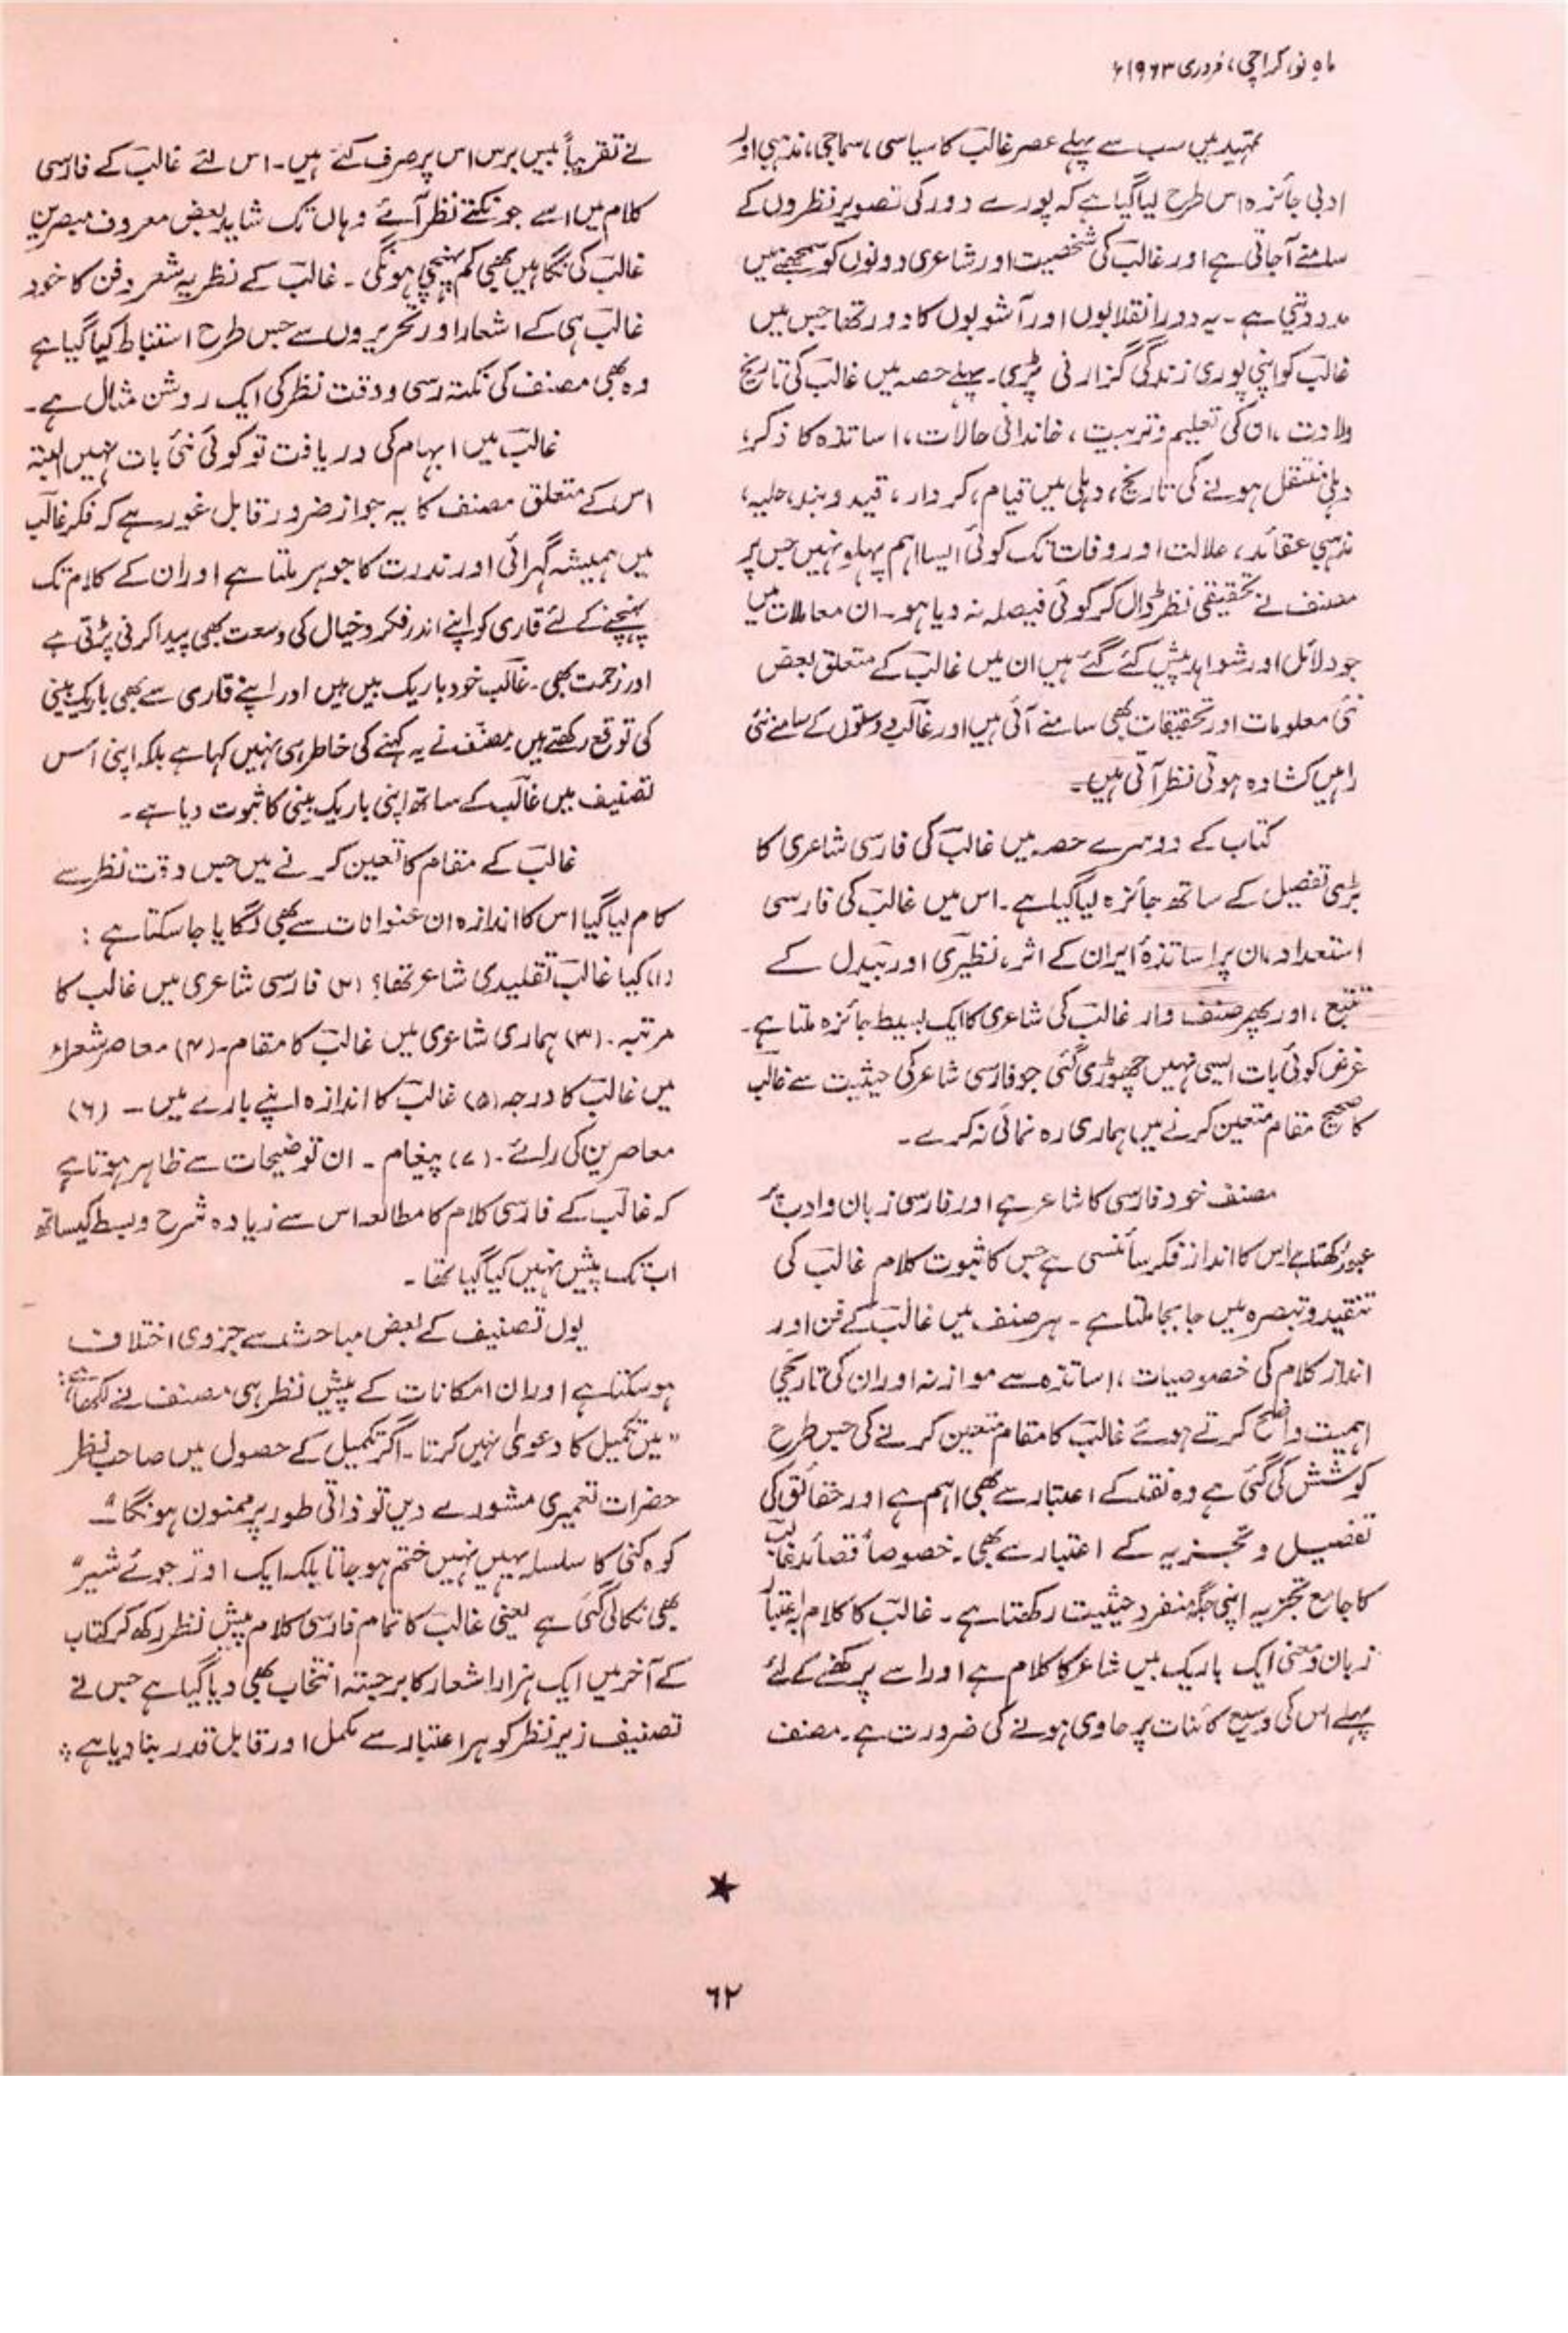 ماہِ نو، کراچی، فروری ۱۹۶۳ء
تمہید میں سب سے پہلے عصر غالبؔ کا سیاسی، سماجی، مذہبی اور
ادبی جائزہ اس طرح لیا گیا ہے کہ پورے دور کی تصویر نظروں کے
سامنے آجاتی ہے اور غالبؔ کی شخصیت اور شاعری دونوں کو سمجھنے میں
مدد دیتی ہے۔ یہ دور انقلابوں اور آشوبوں کا دور تھا جس میں
غالبؔ کو اپنی پوری زندگی گزارنی پڑی۔ پہلے حصہ میں غالبؔ کی تاریخ
ولادت، ان کی تعلیم و تربیت، خاندانی حالات، اساتذہ کا ذکر،
دہلی منتقل ہونے کی تاریخ، دہلی میں قیام، کردار، قید و بند، حلیہ،
مذہبی عقائد، علالت اور وفات تک کوئی ایسا اہم پہلو نہیں جس پر
مصنف نے تحقیقی نظر ڈال کر کوئی فیصلہ نہ دیا ہو۔ ان معاملات میں
جو دلائل اور شواہد پیش کئے گئے ہیں ان میں غالبؔ کے متعلق بعض
نئی معلومات اور تحقیقات بھی سامنے آئی ہیں اور غالبؔ دوستوں کے سامنے نئی
راہیں کشادہ ہوتی نظر آتی ہیں۔
کتاب کے دوسرے حصہ میں غالبؔ کی فارسی شاعری کا
بڑی تفصیل کے ساتھ جائزہ لیا گیا ہے۔ اس میں غالبؔ کی فارسی
استعداد، ان پر اساتذۂ ایران کے اثر، نظیریؔ اور بیدلؔ کے
تتبع، اور پھر صنف وار غالبؔ کی شاعری کا ایک بسیط جائزہ ملتا ہے۔
غرض کوئی بات ایسی نہیں چھوڑی گئی جو فارسی شاعر کی حیثیت سے غالبؔ
کا صحیح مقام متعین کرنے میں ہماری رہ نمائی نہ کرے۔
مصنف خود فارسی کا شاعر ہے اور فارسی زبان و ادب پر
عبور رکھتا ہے اس کا انداز فکر سائنسی ہے جس کا ثبوت کلام غالبؔ کی
تنقید و تبصرہ میں جا بجا ملتا ہے۔ ہر صنف میں غالبؔ کے فن اور
انداز کلام کی خصوصیات، اساتذہ سے موازنہ اور ان کی تاریخی
اہمیت واضح کرتے ہوئے غالبؔ کا مقام متعین کرنے کی جس طرح
کوشش کی گئی ہے وہ نقد کے اعتبار سے بھی اہم ہے اور حقائق کی
تفصیل و تجزیہ کے اعتبار سے بھی۔ خصوصاً قصائد غالبؔ
کا جامع تجزیہ اپنی جگہ منفرد حیثیت رکھتا ہے۔ غالبؔ کا کلام بہ اعتبار
زبان و معنی ایک باریک بیں شاعر کا کلام ہے اور اسے پرکھنے کے لئے
پہلے اس کی وسیع کائنات پر حاوی ہونے کی ضرورت ہے۔ مصنف
نے تقریباً بیس برس اس پر صرف کئے ہیں۔ اس لئے غالبؔ کے فارسی
کلام میں اسے جو نکتے نظر آئے وہاں تک شاید بعض معروف مبصرین
غالبؔ کی نگاہیں بھی کم پہنچی ہونگی۔ غالبؔ کے نظریہ شعر و فن کا خود
غالبؔ ہی کے اشعار اور تحریروں سے جس طرح استنباط کیا گیا ہے
وہ بھی مصنف کی نکتہ رسی و دقت نظر کی ایک روشن مثال ہے۔
غالبؔ میں ابہام کی دریافت تو کوئی نئی بات نہیں البتہ
اس کے متعلق مصنف کا یہ جواز ضرور قابل غور ہے کہ فکر غالبؔ
میں ہمیشہ گہرائی اور ندرت کا جوہر ملتا ہے اور ان کے کلام تک
پہنچنے کے لئے قاری کو اپنے اندر فکر و خیال کی وسعت بھی پیدا کرنی پڑتی ہے
اور زحمت بھی۔ غالبؔ خود باریک بیں ہیں اور اپنے قاری سے بھی باریک بینی
کی توقع رکھتے ہیں مصنف نے یہ کہنے کی خاطر ہی نہیں کہا ہے بلکہ اپنی اس
تصنیف میں غالبؔ کے ساتھ اپنی باریک بینی کا ثبوت دیا ہے۔
غالبؔ کے مقام کا تعین کرنے میں جس دقت نظر سے
کام لیا گیا اس کا اندازہ ان عنوانات سے بھی لگایا جاسکتا ہے:
(۱) کیا غالبؔ تقلیدی شاعر تھا؟ (۲) فارسی شاعری میں غالب کا
مرتبہ۔ (۳) ہماری شاعری میں غالبؔ کا مقام۔ (۴) معاصر شعراء
میں غالبؔ کا درجہ (۵) غالبؔ کا اندازہ اپنے بارے میں۔ (۶)
معاصرین کی رائے۔ (۷) پیغام۔ ان توضیحات سے ظاہر ہوتا ہے
کہ غالبؔ کے فارسی کلام کا مطالعہ اس سے زیادہ شرح و بسط کیساتھ
اب تک پیش نہیں کیا گیا تھا۔
یوں تصنیف کے بعض مباحث سے جزوی اختلاف
ہوسکتا ہے اور ان امکانات کے پیش نظر ہی مصنف نے لکھا ہے:
"میں تکمیل کا دعویٰ نہیں کرتا۔ اگر تکمیل کے حصول میں صاحب نظر
حضرات تعمیری مشورے دیں تو ذاتی طور پر ممنون ہونگا"۔
کوہ کنی کا سلسلہ یہیں نہیں ختم ہو جاتا بلکہ ایک اور "جوئے شیر"
بھی نکالی گئی ہے یعنی غالبؔ کا تمام فارسی کلام پیش نظر رکھ کر کتاب
کے آخر میں ایک ہزار اشعار کا برجستہ انتخاب بھی دیا گیا ہے جس نے
تصنیف زیر نظر کو ہر اعتبار سے مکمل اور قابل قدر بنا دیا ہے ؞
۶۲